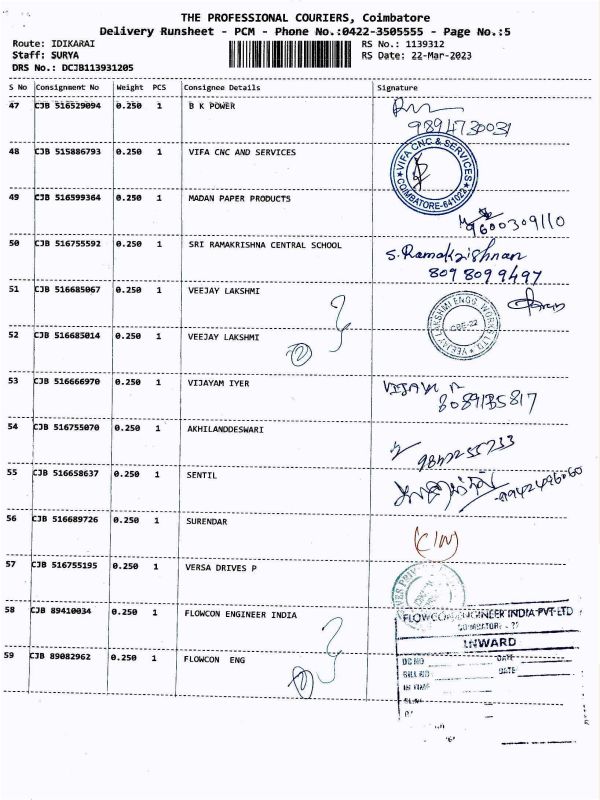 THE PROFESSIONAL COURIERS, Coimbatore
Delivery Runsheet - PCM - Phone No.:0422-3505555 - Page No.:5
Route: IDIKARAI RS No.: 1139312
Staff: SURYA RS Date: 22-Mar-2023
DRS No.: DCJB113931205
S No Consignment No Weight PCS Consignee Details Signature
47 CJB 516529094 0.250 1 B K POWER
9894730031
48 CJB 515886793 0.250 1 VIFA CNC AND SERVICES
VIFA CNC & SERVICES COIMBATORE-641022
49 CJB 516599364 0.250 1 MADAN PAPER PRODUCTS
9600309110
50 CJB 516755592 0.250 1 SRI RAMAKRISHNA CENTRAL SCHOOL
S. Ramakrishnan
8098099497
51 CJB 516685067 0.250 1 VEEJAY LAKSHMI
VEEJAY LAKSHMI ENGG. WORKS LTD CBE-22
52 CJB 516685014 0.250 1 VEEJAY LAKSHMI
2
53 CJB 516666970 0.250 1 VIJAYAM IYER
8089135817
54 CJB 516755070 0.250 1 AKHILANDDESWARI
55 CJB 516658637 0.250 1 SENTIL
9942496060
56 CJB 516689726 0.250 1 SURENDAR
57 CJB 516755195 0.250 1 VERSA DRIVES P
58 CJB 89410034 0.250 1 FLOWCON ENGINEER INDIA
FLOWCON ENGINEER INDIA PVT LTD
INWARD
59 CJB 89082962 0.250 1 FLOWCON ENG
DC NO DATE
BILL NO DATE
IN TIME